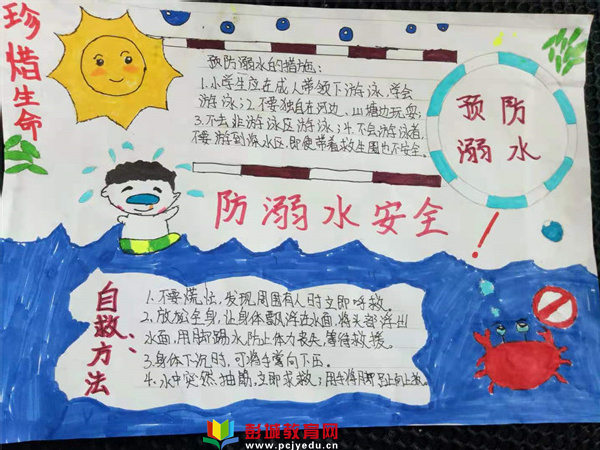 珍惜生命
预防溺水的措施:
1.小学生应在成人带领下游泳,学会
游泳;2.不要独自在河边、山塘边玩耍;
3.不去非游泳区游泳;4.不会游泳者,
不要游到深水区,即使带着救生圈也不安全。
预防
溺水
防溺水安全!
自救方法
1.不要慌忙,发现周围有人时立即呼救。
2.放松全身,让身体飘浮在水面,将头部浮出
水面,用脚踢水,防止体力丧失,等待救援。
3.身体下沉时,可将手掌向下压。
4.水中突然抽筋,立即求救;用手将脚
彭城教育网
www.pcjyedu.cn